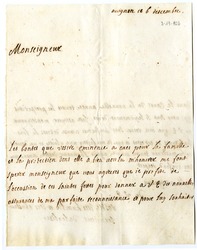 avignon ce 6 decembre
Monseigneur
Les bontés que votre eminence a eues pour ma famille
et la protection dont elle a bien voulu m'honnorer me font
esperer monseigneur que vous agreerez que je profite de
l'occasion de ces saintes festes pour donner a V. E. des nouvelles
assurances de ma parfaite reconnoissance et pour luy souhaiter